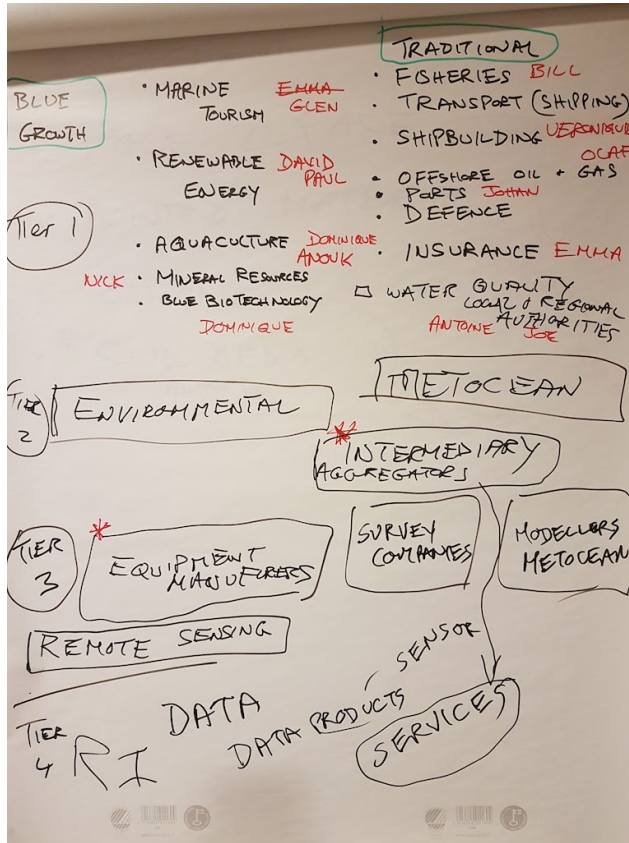 TRADITIONAL
BLUE
GROWTH
· MARINE EMMA
TOURISM GLEN
· RENEWABLE DAVID
ENERGY PAUL
Tier 1
· AQUACULTURE DOMINIQUE
ANOUK
NICK · MINERAL RESOURCES
· BLUE BIOTECHNOLOGY
DOMINIQUE
· FISHERIES BILL
· TRANSPORT (SHIPPING)
· SHIPBUILDING VERONIQUE
OLAF
· OFFSHORE OIL + GAS
· PORTS JOHAN
· DEFENCE
· INSURANCE EMMA
□ WATER QUALITY
LOCAL & REGIONAL
AUTHORITIES
ANTOINE JOE
TIER
2
ENVIRONMENTAL
METOCEAN
INTERMEDIARY
AGGREGATORS
TIER
3
EQUIPMENT
SURVEY
COMPANIES
MODELLERS
METOCEAN
REMOTE SENSING
TIER
4
RI
DATA
DATA PRODUCTS
SENSOR
SERVICES